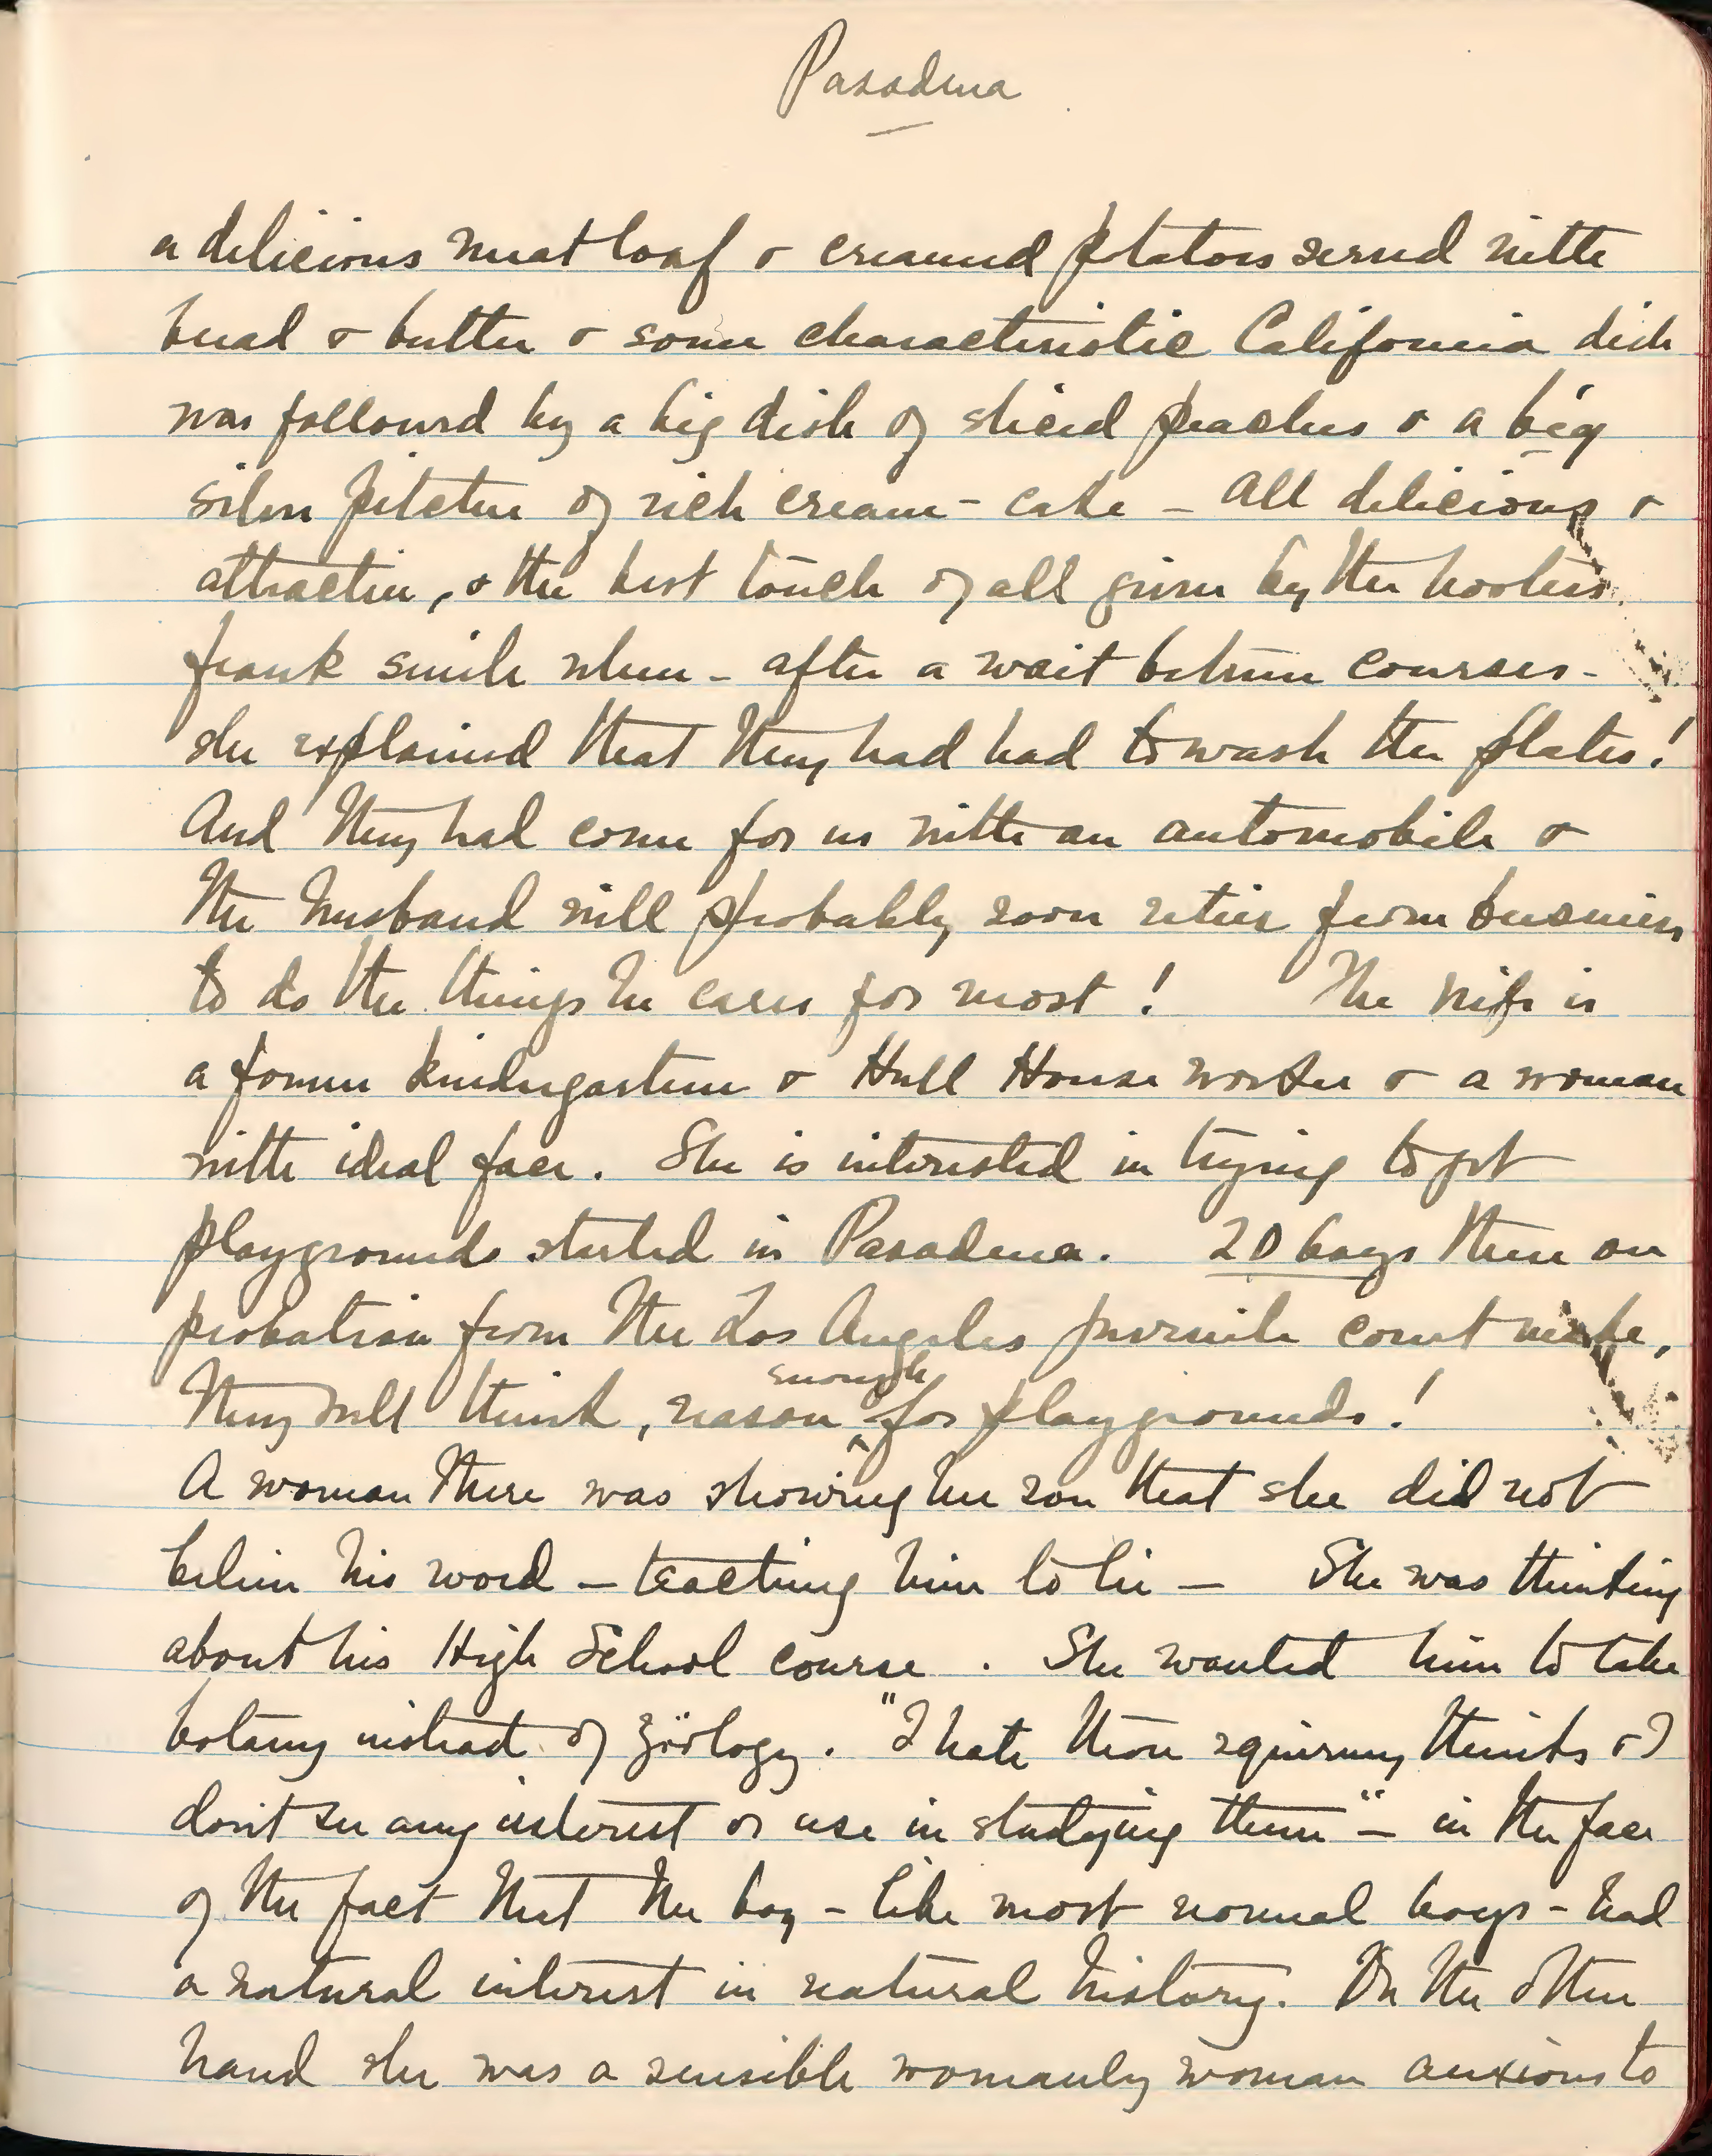 Pasadena
a delicious meat loaf & creamed potatoes served with
bread & butter & some characteristic California dish
was followed by a big dish of sliced peaches & a big
silver pitcher of rich cream - cake - all delicious &
attractive, & the best touch of all given by the hostess
frank smile when - after a wait between courses -
she explained that they had had to wash the plates!
And they had come for us with an automobile &
the husband will probably soon retire from business
to do the things he cares for most! The wife is
a former kindergartener & Hull House worker & a woman
with ideal face. She is interested in trying to get
playgrounds started in Pasadena. 20 boys there on
probation from the Los Angeles juvenile court make,
they will think, reason enough for playgrounds!
A woman there was showing her son that she did not
believe his word - teaching him to lie - She was thinking
about his High School course. She wanted him to take
botany instead of zöology. "I hate those squirmy things & I
don't see any interest or use in studying them" - in the face
of the fact that the boy - like most normal boys - had
a natural interest in natural history. On the other
hand she was a sensible womanly woman anxious to